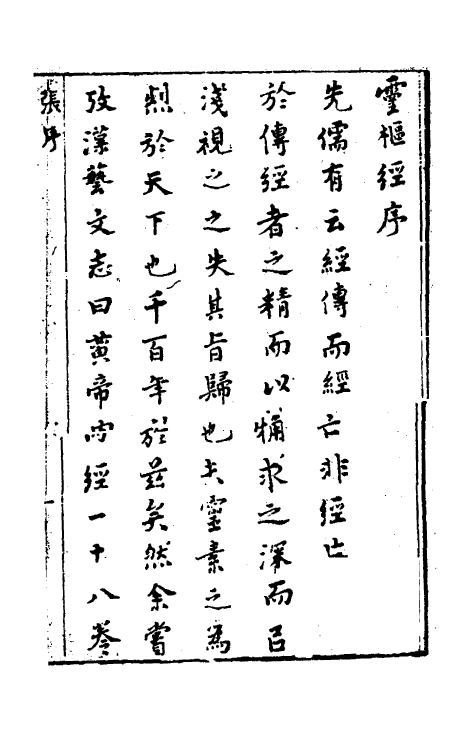 靈樞經序
先儒有云經傳而經亡非經亡
於傳經者之精而以觕求之深而㠯
淺視之之失其旨歸也夫靈素之為
烈於天下也千百年於茲矣然余嘗
攷漢藝文志曰黃帝內經一十八卷
張序